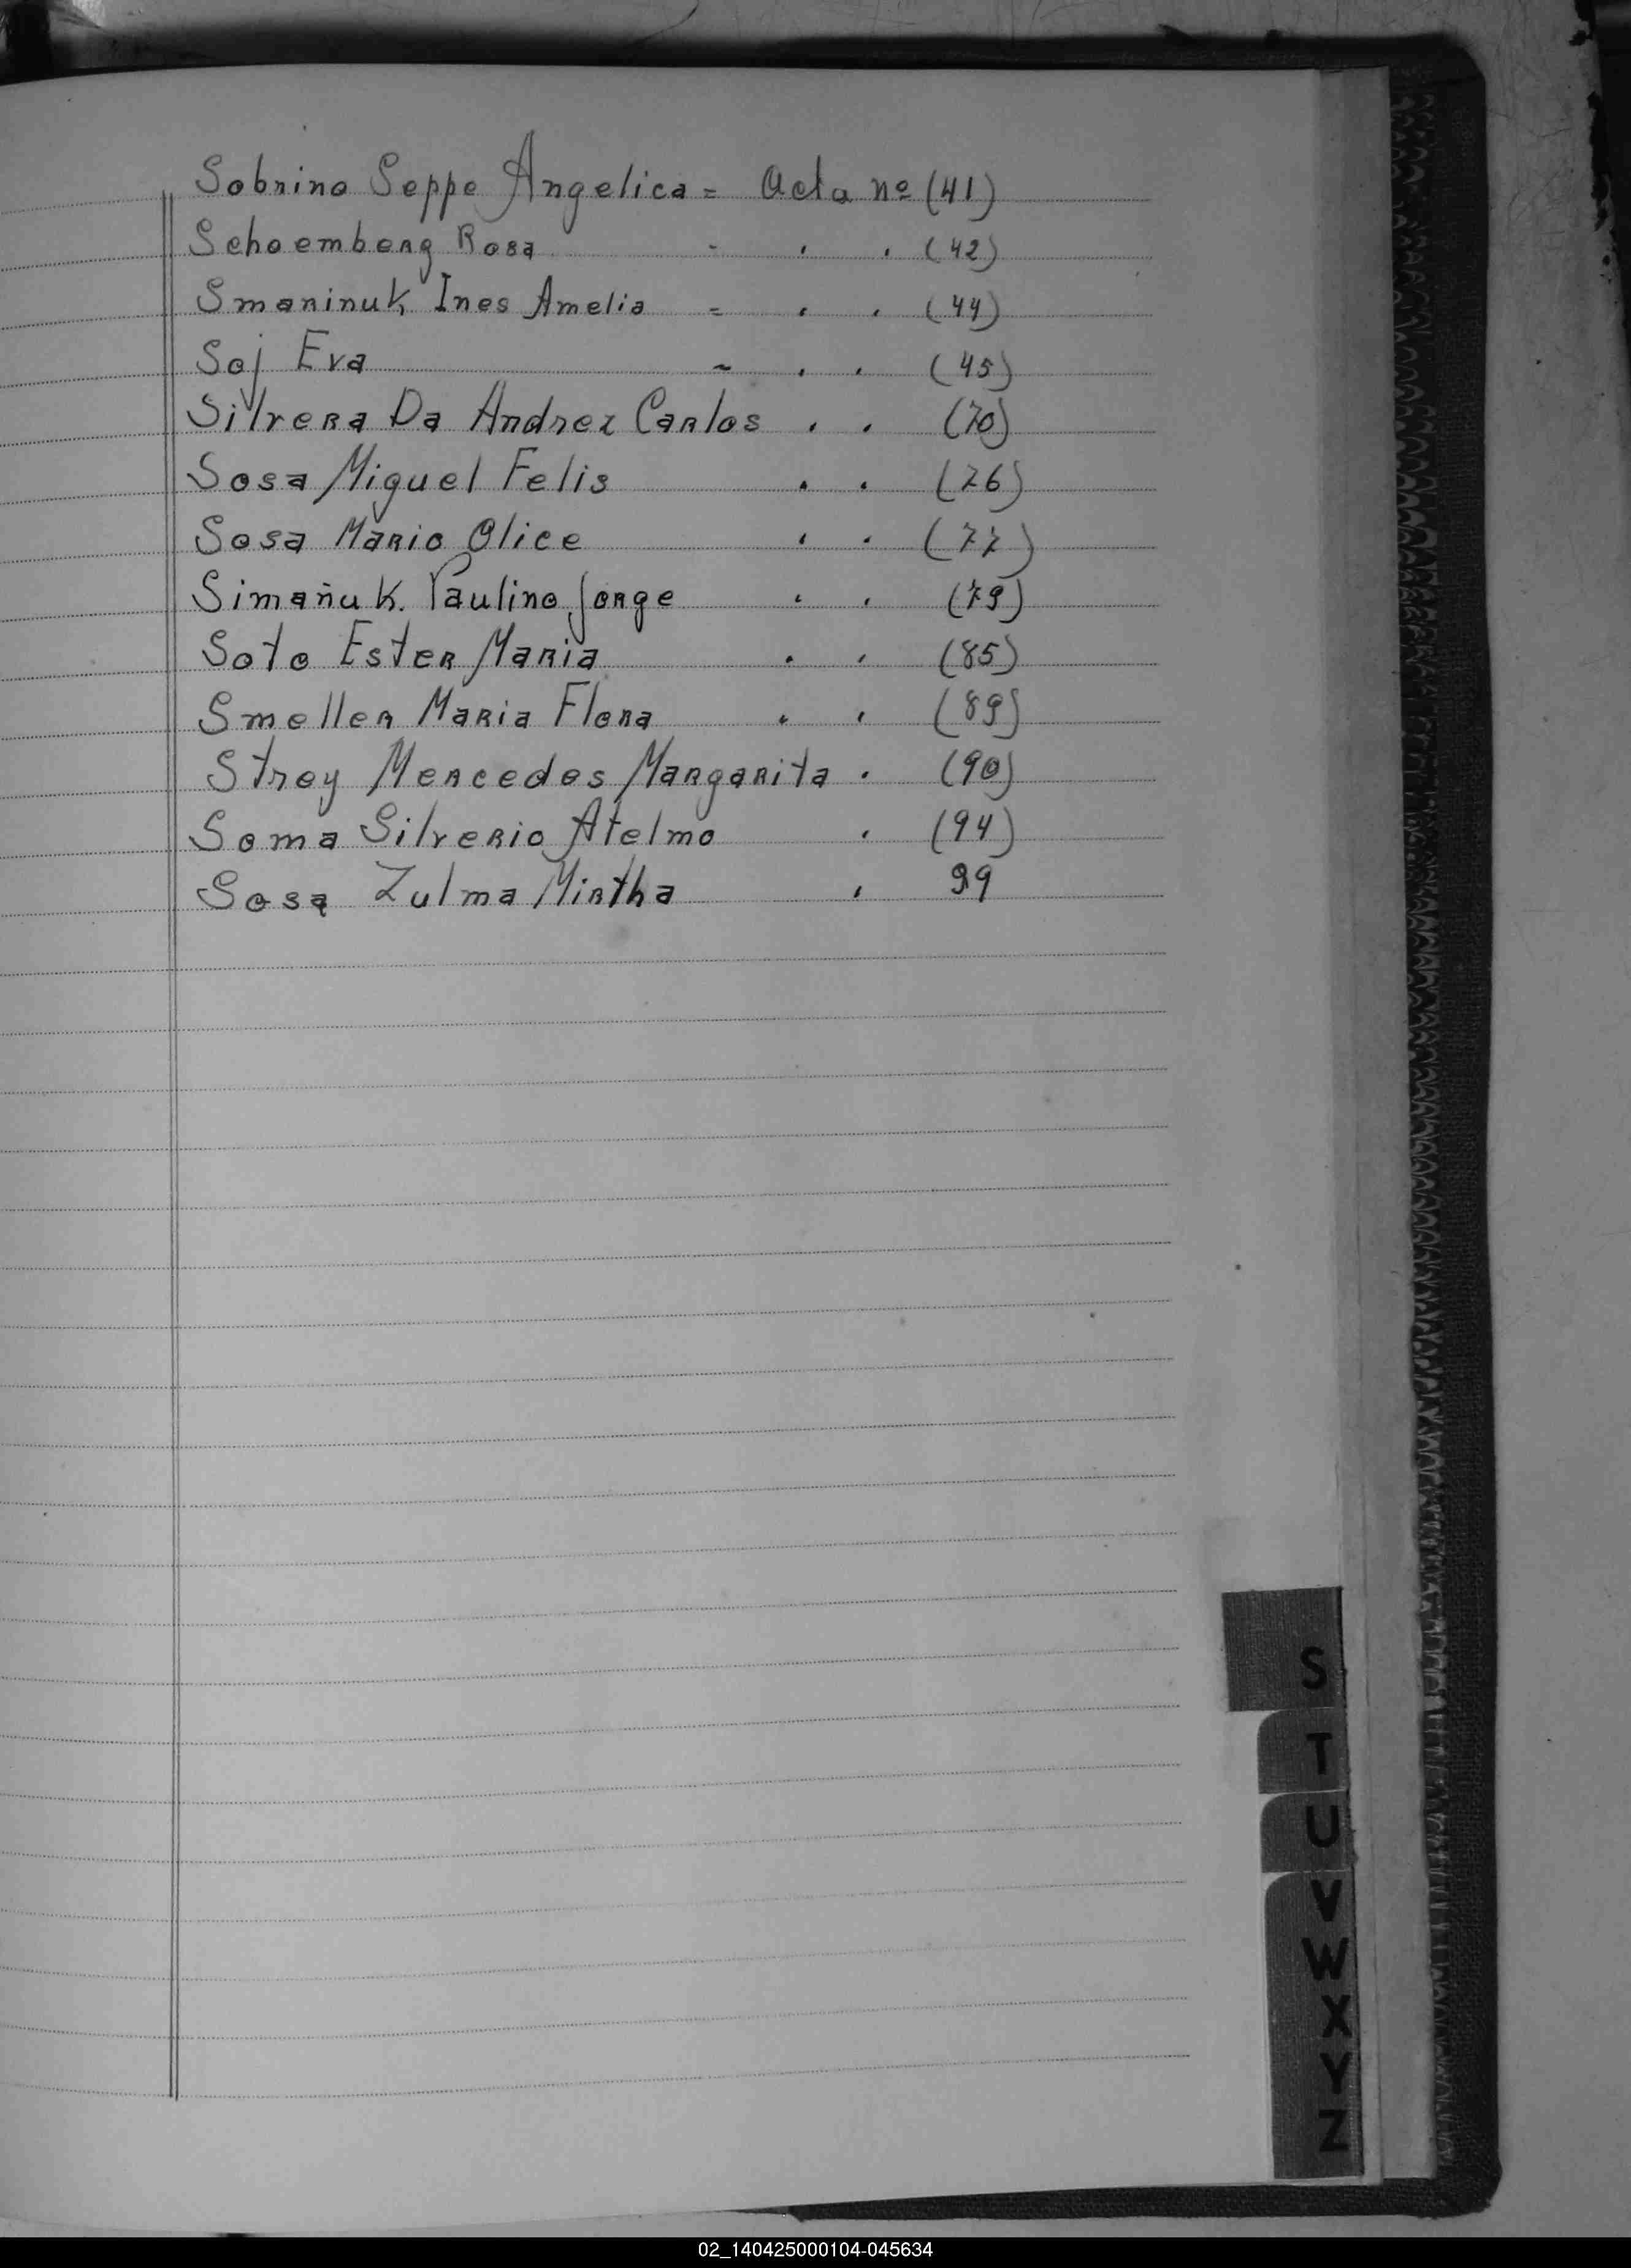 Sobrino Seppe Angelica = Acta nº (41)
Schoemberg Rosa - . . (42)
Smaninuk Ines Amelia = . . (44)
Soj Eva ~ . . (45)
Silvera Da Andrez Carlos . . (70)
Sosa Miguel Felis . . (76)
Sosa Mario Olice . . (77)
Simañuk. Paulino Jorge . . (79)
Soto Ester Maria . . (85)
Smeller Maria Flora . . (89)
Stroy Mercedes Margarita . (90)
Soma Silverio Atelmo . (94)
Sosa Zulma Mirtha . 99
S
T
U
V
W
X
Y
Z
02_140425000104-045634